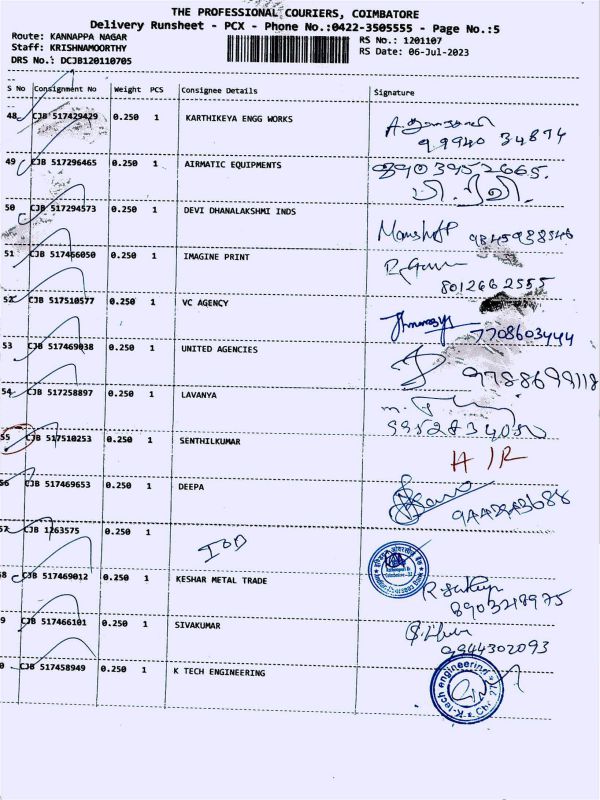 THE PROFESSIONAL COURIERS, COIMBATORE
Delivery Runsheet - PCX - Phone No.:0422-3505555 - Page No.:5
Route: KANNAPPA NAGAR
RS No.: 1201107
Staff: KRISHNAMOORTHY
RS Date: 06-Jul-2023
DRS No.: DCJB120110705
S No Consignment No Weight PCS Consignee Details Signature
48 CJB 517429429 0.250 1 KARTHIKEYA ENGG WORKS
99940 34894
49 CJB 517296465 0.250 1 AIRMATIC EQUIPMENTS 8903952665.
50 CJB 517294573 0.250 1 DEVI DHANALAKSHMI INDS
51 CJB 517466050 0.250 1 IMAGINE PRINT
8012662555
52 CJB 517510577 0.250 1 VC AGENCY
7708603444
53 CJB 517469038 0.250 1 UNITED AGENCIES
9788699118
54 CJB 517258897 0.250 1 LAVANYA
55 CJB 517510253 0.250 1 SENTHILKUMAR
56 CJB 517469653 0.250 1 DEEPA
57 CJB 1263575 0.250 1 IOB
58 CJB 517469012 0.250 1 KESHAR METAL TRADE
8903218975
59 CJB 517466101 0.250 1 SIVAKUMAR
9944302093
0 CJB 517458949 0.250 1 K TECH ENGINEERING
K-tech engineering